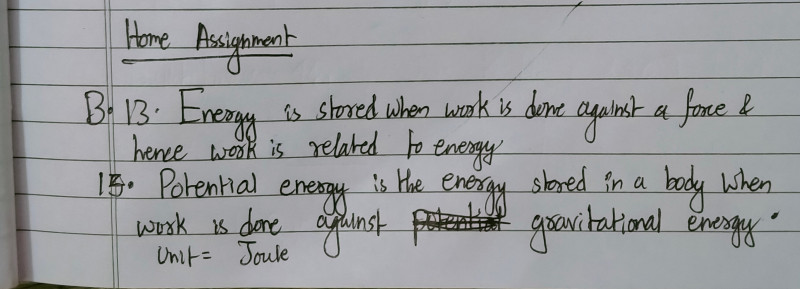 Home Assignment
B. 13. Energy is stored when work is done against a force &
hence work is related to energy
15. Potential energy is the energy stored in a body when
work is done against potential gravitational energy.
Unit = Joule